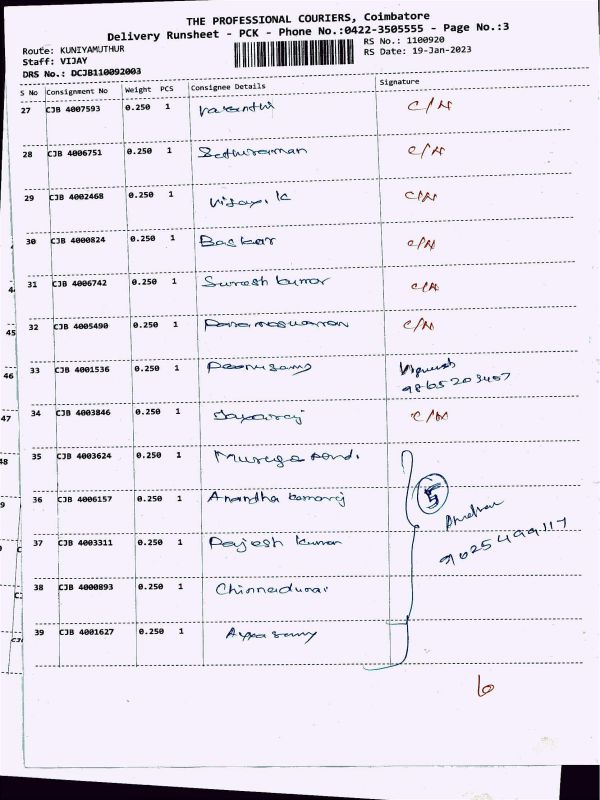 THE PROFESSIONAL COURIERS, Coimbatore
Delivery Runsheet - PCK - Phone No.:0422-3505555 - Page No.:3
Route: KUNIYAMUTHUR
RS No.: 1100920
Staff: VIJAY
RS Date: 19-Jan-2023
DRS No.: DCJB110092003
S No Consignment No Weight PCS Consignee Details Signature
27 CJB 4007593 0.250 1 Vasanthi C/N
28 CJB 4006751 0.250 1 Sethuraman C/N
29 CJB 4002468 0.250 1 Vijaya. K C/N
30 CJB 4000824 0.250 1 Baskar C/N
31 CJB 4006742 0.250 1 Suresh kumar C/N
45 32 CJB 4005490 0.250 1 Parameswaran C/N
46 33 CJB 4001536 0.250 1 Ponnusamy
9865203407
47 34 CJB 4003846 0.250 1 Jayaraj C/N
48 35 CJB 4003624 0.250 1 Muruga Pandi.
36 CJB 4006157 0.250 1 Anandha kumaraj 5
37 CJB 4003311 0.250 1 Rajesh kumar 9025499117
38 CJB 4000893 0.250 1 Chinnadurai
39 CJB 4001627 0.250 1 Ayyasamy
6